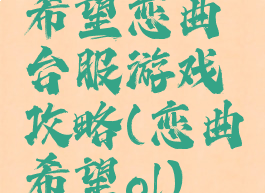 希望恋曲
台服游戏
攻略(恋曲
希望ol)